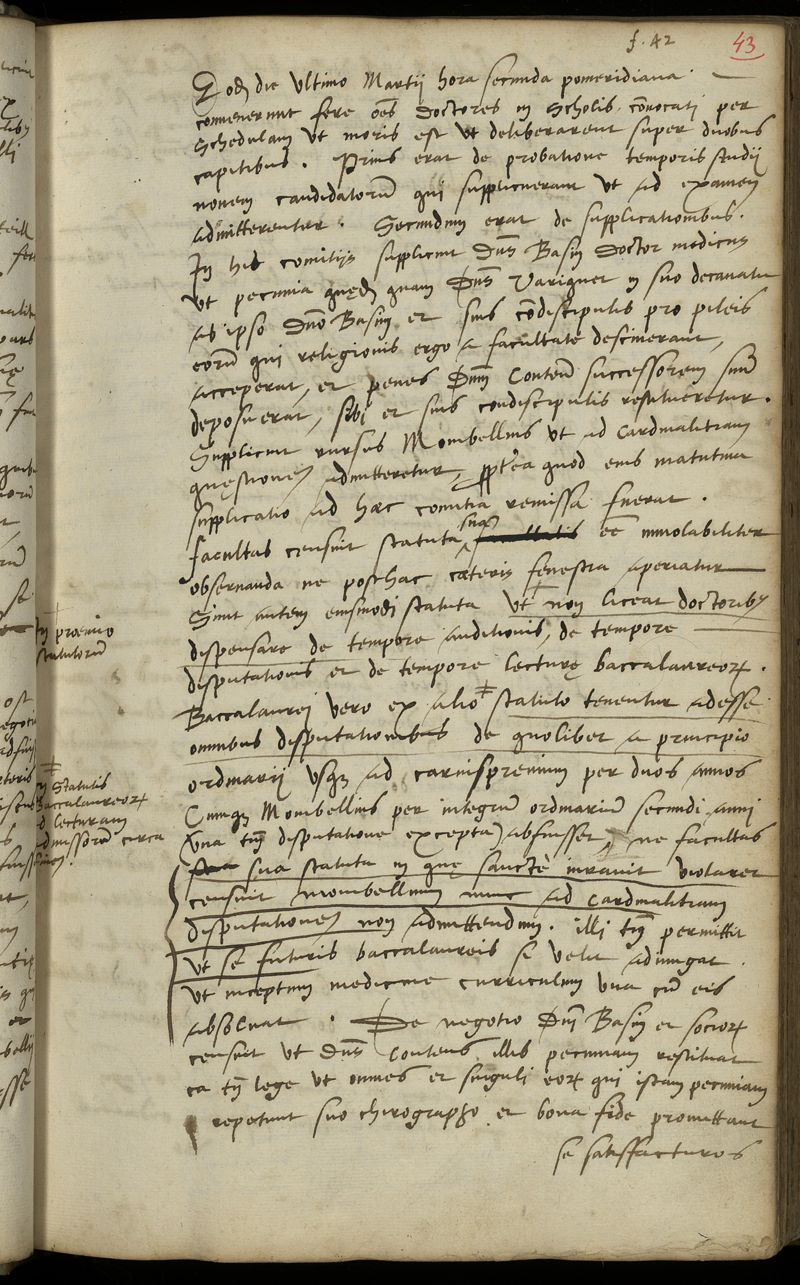 f. 42
43
Eodē die ultimo Martij hora secunda pomeridiana
convenerunt fere oēs doctores in scholis convocati per
schedulam ut moris est ut deliberarent super duobus
capitibus. Prius erat de probatione temporis studij
novem candidatorū qui supplicuerant ut ad examen
admitterentur. Secundum erat de supplicationibus.
In his comitijs supplicuit Dn̄s Basin doctor medicus
ut pecunia quędā quam Dn̄s Varignet in suo decanatu
ab ipso Dn̄o Basin et suis cōdiscipulis pro pileis
eorū qui religionis ergo a facultate descinerant,
acceperat, et penes Dn̄m Contenū successorem suū
deposuerat, sibi et suis condiscipulis restitueretur.
Supplicuit rursus Mombellius ut ad Cardinalitiam
quęstionē admitteretur, ꝓpterea quod eius matutina
supplicatio ad hæc comitia remissa fuerat.
facultas censuit statuta sua eē inviolabiliter
observanda ne posthac cæteris fenestra aperiatur
Sunt autem eiusmodi statuta ut non liceat doctoribꝰ
dispensare de tempore auditionis, de tempore
disputationis et de tempore lecturę baccalaureorꝝ.
Baccalaurei vero ex alio statuto tenentur adesse
omnibus disputationibus de quolibet a principio
ordinarij usqꝫ ad carnisprenium per duos annos
Cumqꝫ Mombellius per integrū ordinariū secundi anni
(una tm̄ disputatione excepta) abfuisset, ne facultas
sua statuta in quę sanctè iuravit violaret
censuit Mombellium nunc ad Cardinalitiam
disputationē non admittendum. illi tn̄ permittit
ut se futuris baccalaureis si velit adiungat.
ut inceptum medicinæ curriculum una cū eis
absolvat. De negotio Dn̄i Basin et sociorꝝ
censuit ut Dn̄s Contenus illis pecuniam restituat
ea tn̄ lege ut omnes et singuli eorꝝ qui istam pecuniam
repetunt suo chirographo et bona fide promittant
se satisfacturos
In proemio
statutorū
In statutis
baccalaureorꝝ
ad lecturam
admissorū circa